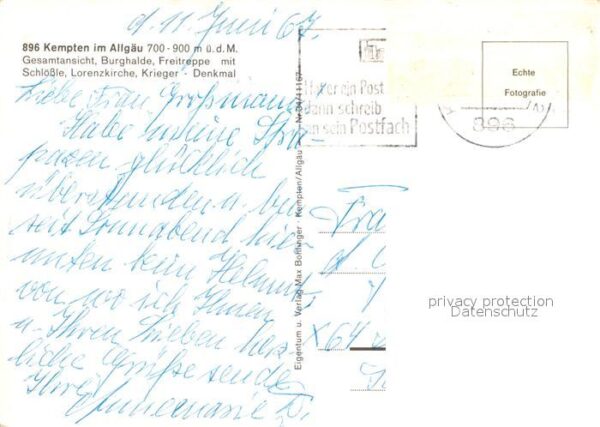 d. 11. Juni 67.
896 Kempten im Allgäu 700-900 m ü. d. M.
Gesamtansicht, Burghalde, Freitreppe mit
Schlößle, Lorenzkirche, Krieger-Denkmal
Liebe Frau Großmann!
Habe meine Stra-
pazen glücklich
überstanden u. bin
seit Sonnabend hier
unten beim Helmut,
von wo ich Ihnen
u. Ihren Lieben herz-
liche Grüße sende
Ihre
Annemarie D.
Eigentum u. Verlag Max Bohlinger · Kempten/Allgäu
Nr. 34/41167
ein Post
dann schreib
an sein Postfach
896
Echte
Fotografie
Fra
d.
X64
privacy protection
Datenschutz